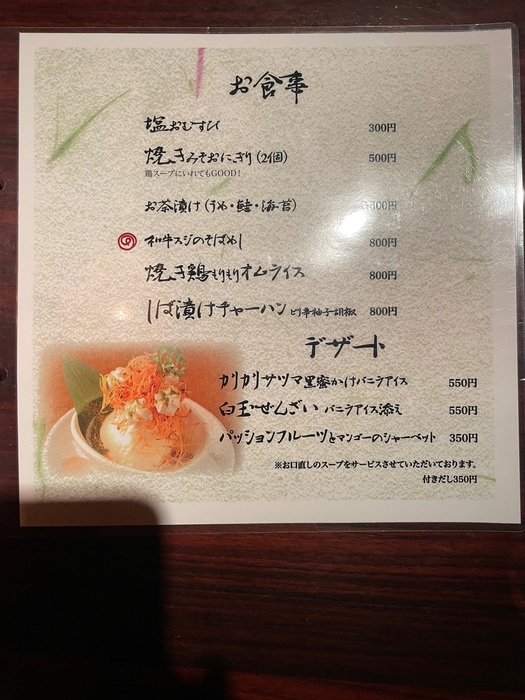 お食事
塩おむすび 300円
焼きみそおにぎり(2個) 500円
鶏スープにいれてもGOOD!
お茶漬け(うめ・鮭・海苔) 500円
和牛スジのそばめし 800円
焼き鶏もりもりオムライス 800円
しば漬けチャーハン ピリ辛柚子胡椒 800円
デザート
カリカリサツマ黒蜜かけバニラアイス 550円
白玉ぜんざい バニラアイス添え 550円
パッションフルーツとマンゴーのシャーベット 350円
※お口直しのスープをサービスさせていただいております。
付きだし350円